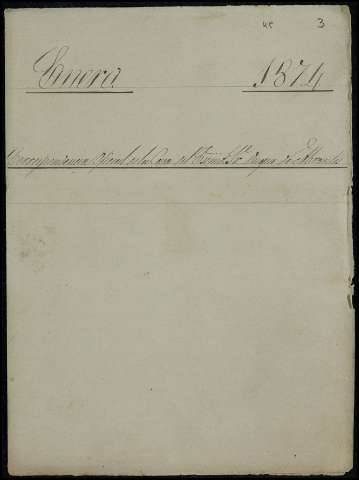 3
Enero 1874
Correspondencia Oficial de la Casa del Excmo. Sr. Duque de Abrantes